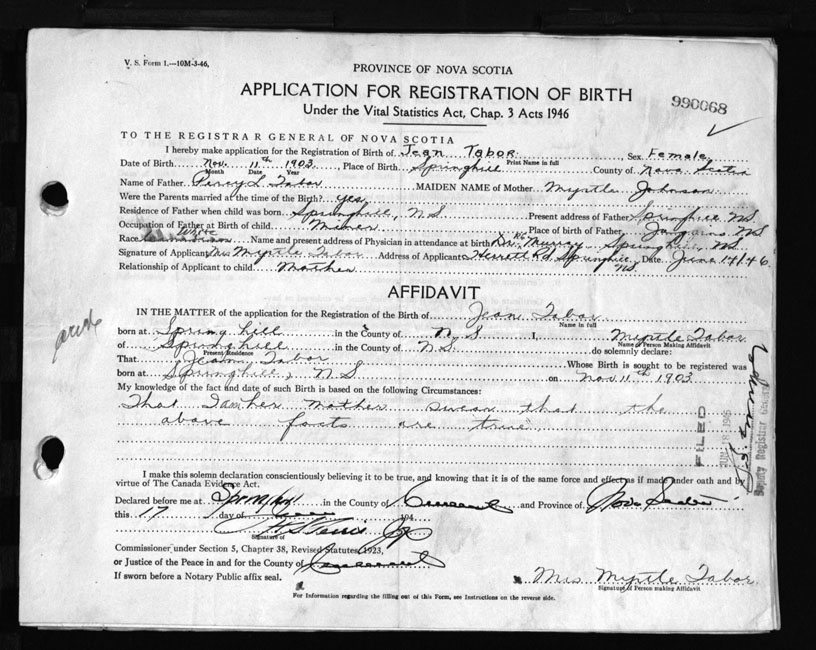 V. S. Form 1.—10M-3-46.
PROVINCE OF NOVA SCOTIA
APPLICATION FOR REGISTRATION OF BIRTH
990068
Under the Vital Statistics Act, Chap. 3 Acts 1946
TO THE REGISTRAR GENERAL OF NOVA SCOTIA
I hereby make application for the Registration of Birth of Jean Tabor Sex Female
Print Name in full
Date of Birth Nov. 11th 1903, Place of Birth Springhill County of Nova Scotia
Month Date Year
Name of Father Percy L Tabor MAIDEN NAME of Mother Myrtle Johnson
Were the Parents married at the time of the Birth? yes
Residence of Father when child was born Springhill, N.S. Present address of Father Springhill N.S.
Occupation of Father at Birth of child Miner Place of birth of Father Joggins N.S
Race White Name and present address of Physician in attendance at birth Dr. Murray Springhill, N.S.
Signature of Applicant Mrs Myrtle Tabor Address of Applicant Herrett Rd Springhill N.S. Date June 14/46
Relationship of Applicant to child Mother
AFFIDAVIT
IN THE MATTER of the application for the Registration of the Birth of Jean Tabor
Name in full
born at Spring hill in the County of N.S I, Myrtle Tabor
Name of Person Making Affidavit
of Springhill in the County of N.S. do solemnly declare:
Present Residence
That Jean Tabor Whose Birth is sought to be registered was
born at Springhill, N.S on Nov 11th 1903
My knowledge of the fact and date of such Birth is based on the following Circumstances:
That I am her mother swear that the
above facts are true
FILED
Deputy Registrar
I make this solemn declaration conscientiously believing it to be true, and knowing that it is of the same force and effect as if made under oath and by
virtue of The Canada Evidence Act.
Declared before me at Springhill in the County of Cumberland and Province of Nova Scotia
this 17 day of 194
Signature of
Commissioner under Section 5, Chapter 38, Revised Statutes, 1923,
or Justice of the Peace in and for the County of Cumberland
If sworn before a Notary Public affix seal.
Mrs Myrtle Tabor
Signature of Person making Affidavit
For Information regarding the filling out of this Form, see Instructions on the reverse side.